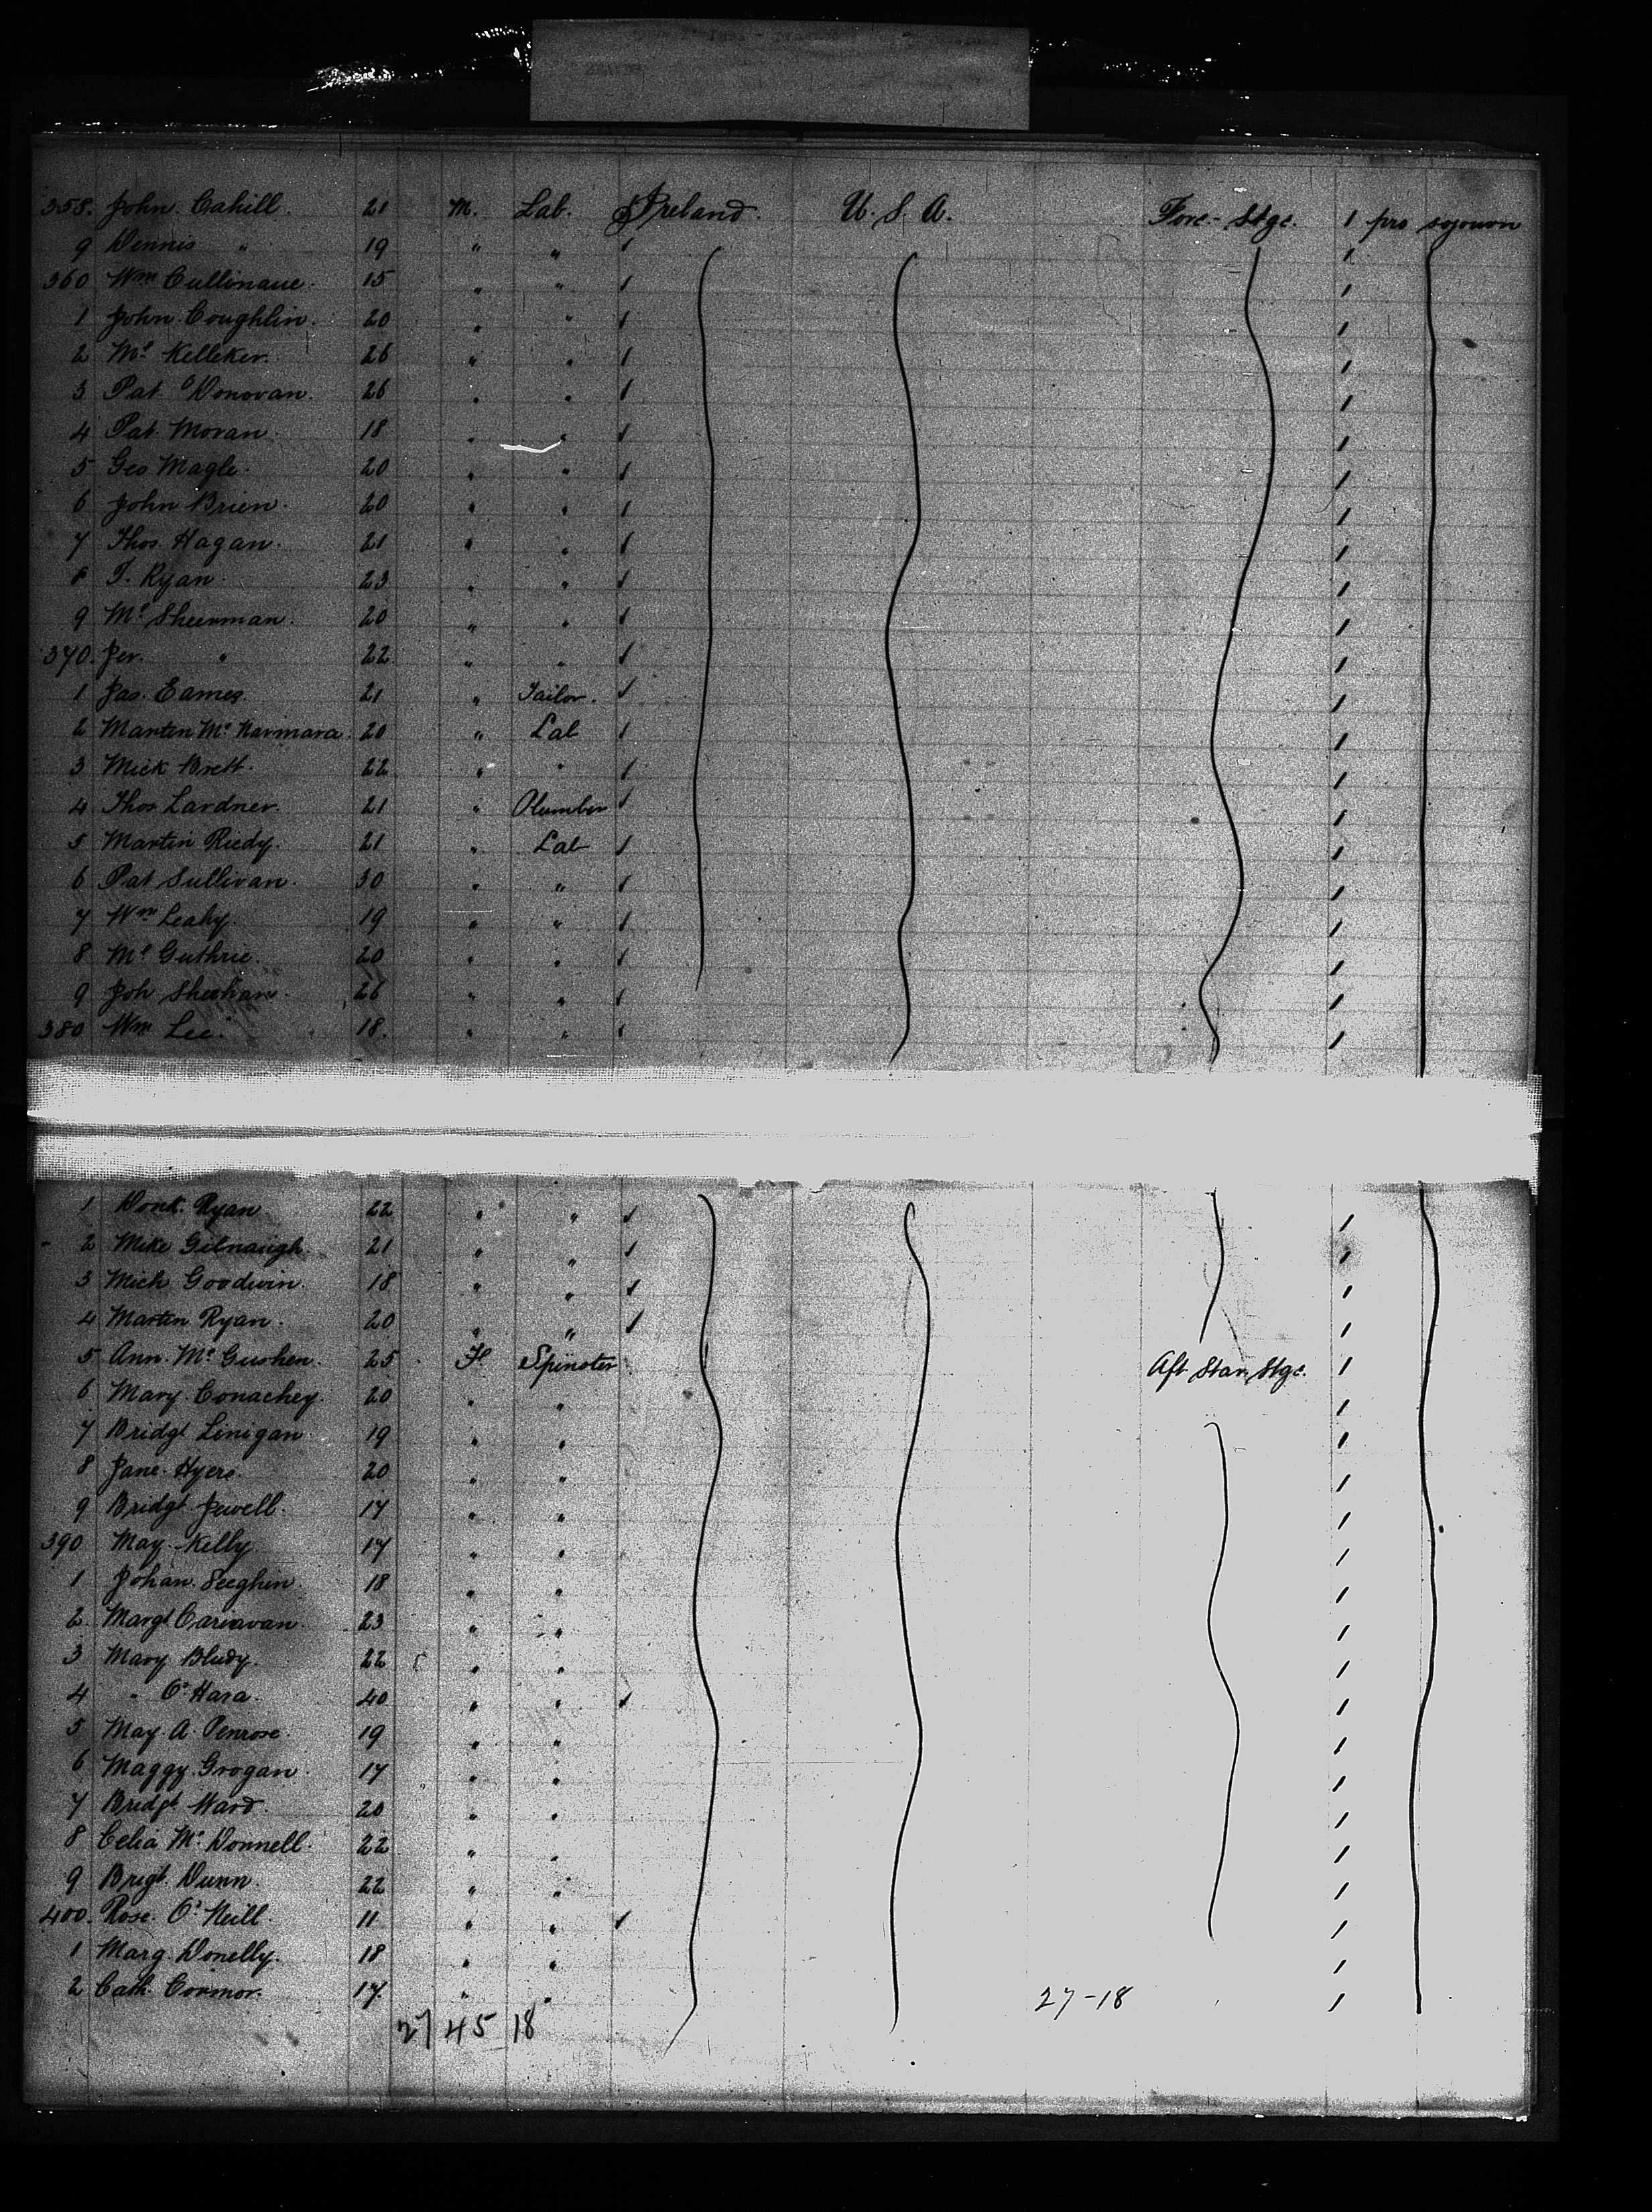 358. John Cahill. 21 M. Lab. Ireland. U. S. A. Fore- Stge. 1 pro sojourn
9 Dennis " 19 " " 1
360 Wm Cullinane. 15 " " 1
1 John Coughlin. 20 " " 1
2 Ml Kelleher. 26 " " 1
3 Pat O'Donovan. 26 " " 1
4 Pat Moran. 18 " " 1
5 Geo Magle. 20 " " 1
6 John Brien. 20 " " 1
7 Thos. Hagan. 21 " " 1
8 T. Ryan. 23 " " 1
9 Ml Sheerman. 20 " " 1
370. Jer. " 22 " " 1
1 Jas. Eames. 21 " Tailor. 1
2 Marten Mc Narmara 20 " Lab 1
3 Mick Brett. 22 " " 1
4 Thos Lardner. 21 " Plumber 1
5 Martin Riedy. 21 " Lab 1
6 Pat Sullivan. 30 " " 1
7 Wm Leahy. 19 " " 1
8 Ml Guthrie. 20 " " 1
9 Joh Sheehan. 26 " " 1
380 Wm Lee. 18. " " 1
1 Ryan 22 " " 1
2 Mike Gilnaugh. 21 " " 1
3 Mich Goodwin. 18 " " 1
4 Marten Ryan. 20 " " 1
5 Ann. Mc Guohen. 25 F Spinster Aft Star. Stge. 1
6 Mary Conachey. 20 " " 1
7 Bridgt Linigan 19 " " 1
8 Jane. Hyers. 20 " " 1
9 Bridgt Jewell. 17 " " 1
390 May. Kelly 17 " " 1
1 Johan. Seeghin 18 " " 1
2 Margt Cariavan 23 " " 1
3 Mary Bludy. 22 " " 1
4 " O'Hara. 40 " " 1
5 May. A. Penrose. 19 " " 1
6 Maggy. Grogan. 17 " " 1
7 Bridgt Ward. 20 " " 1
8 Celia Mc Donnell. 22 " " 1
9 Brigt. Dunn. 22 " " 1
400. Rose. O'Neill. 11 " " 1
1 Marg. Donelly. 18 " " 1
2 Cath. Connor. 17. " " 27-18 1
27 45 18